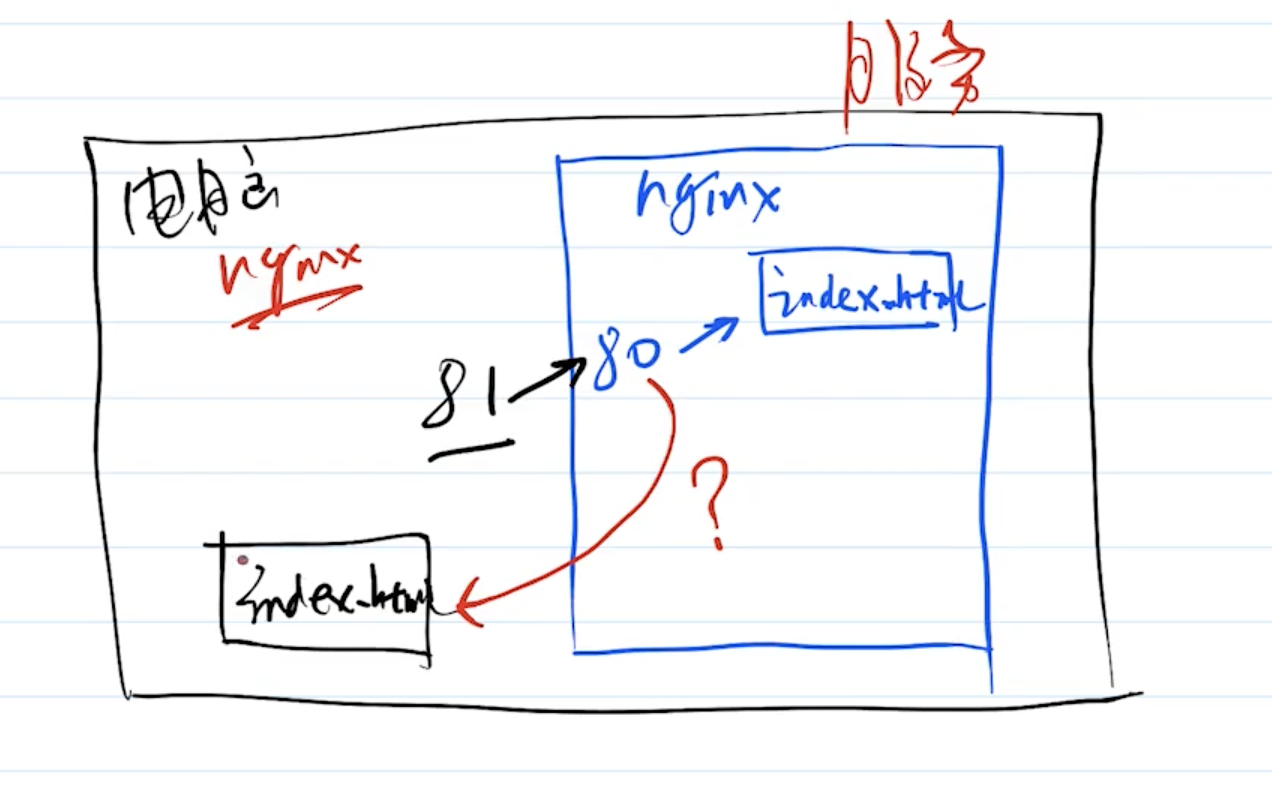 电脑
nginx
nginx
index.html
81
80
?
index.html